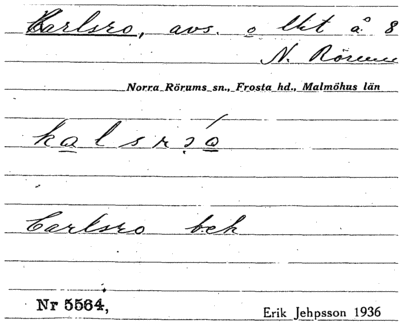 Karlsro, avs. o lht å 8
N. Rörum
Norra Rörums sn., Frosta hd., Malmöhus län
Carlsro bek
Nr 5564,
Erik Jehpsson 1936